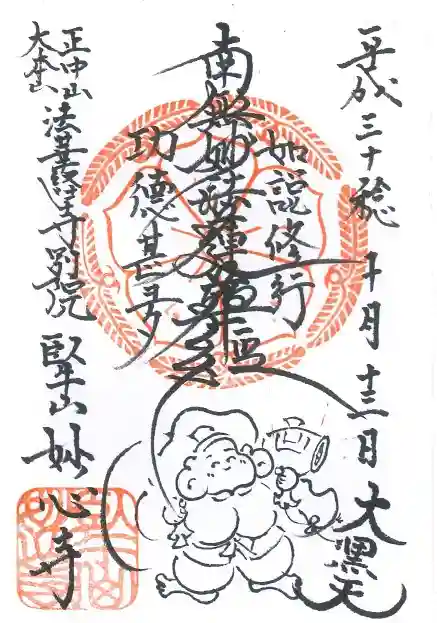 平成三十穐 十月十三日 大黒天
如説修行
南無妙法蓮華経
功徳甚多
正中山
大本山
法華経寺別院 臥牛山 妙心寺